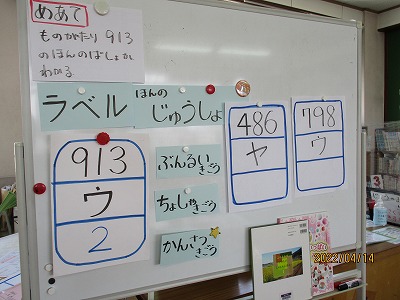 めあて
ものがたり 913
のほんのばしょが
わかる
ラベル
ほんの
じゅうしょ
913
ウ
2
ぶんるい
きごう
ちょしゃきごう
かんさつ
きごう
486
ヤ
798
ウ
2022/04/14